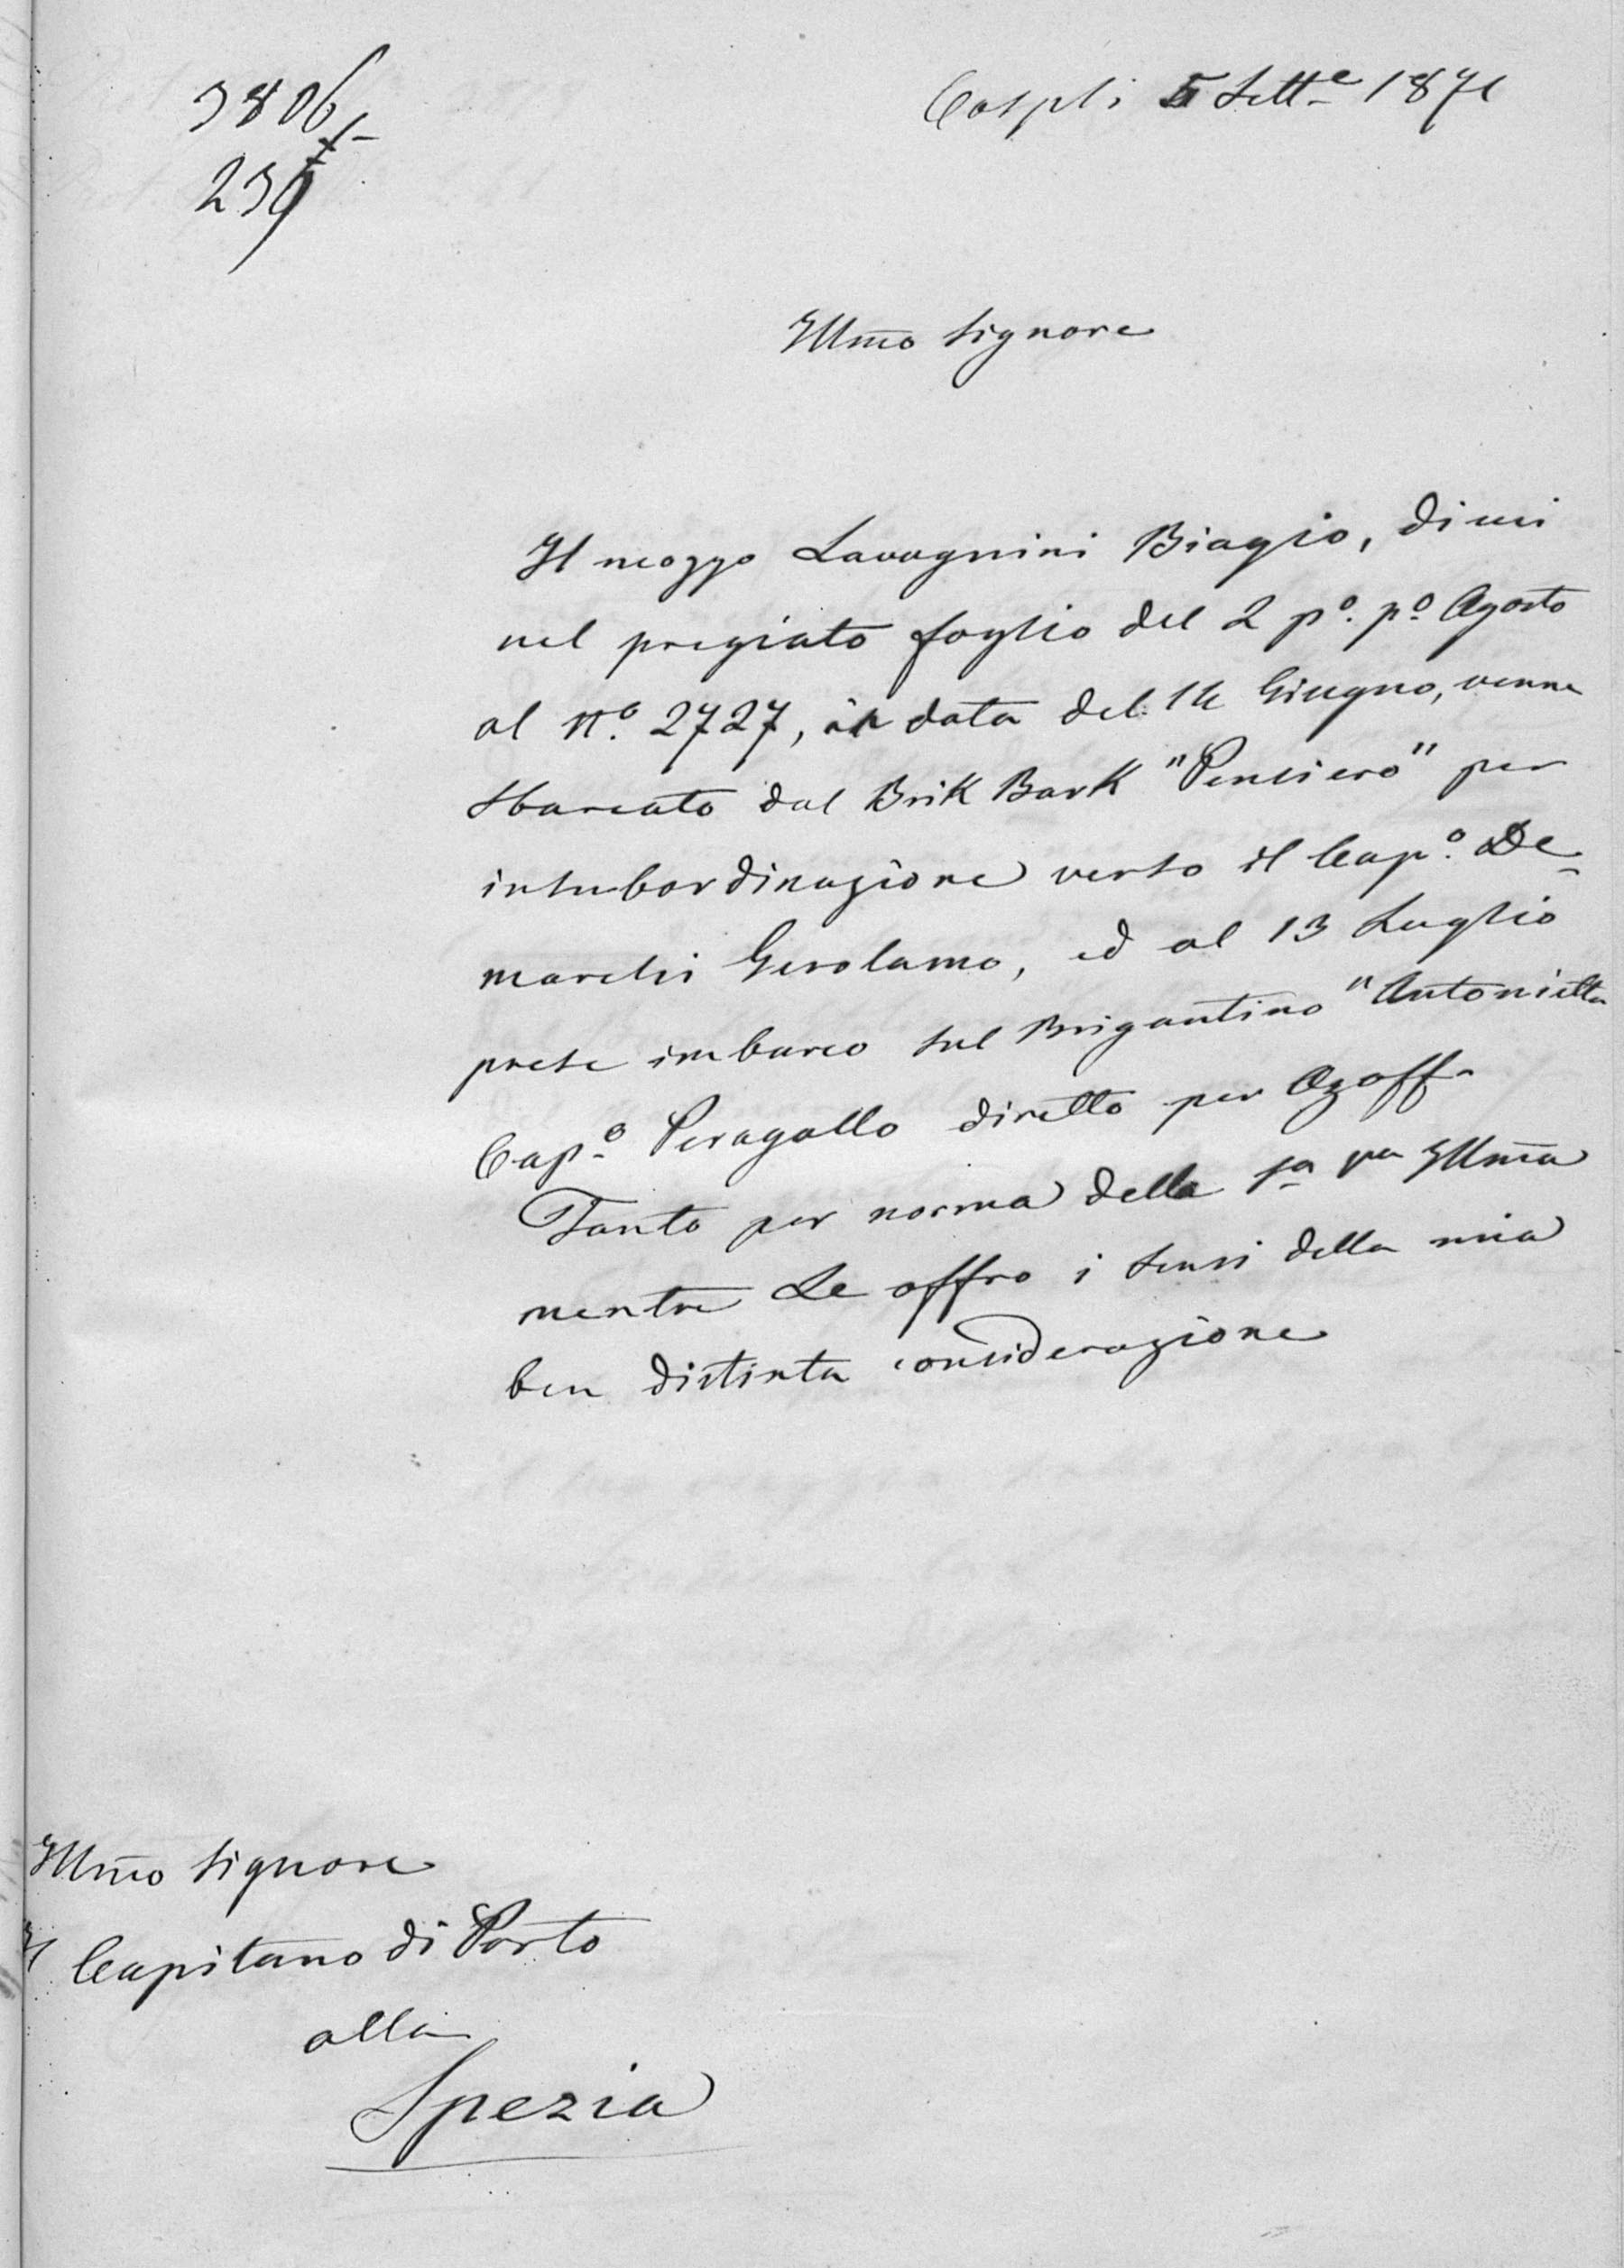 3806
239
Cospli 5 Sett.e 1871
Illmo Signore
Il mozzo Lavagnini Biagio, di cui
nel pregiato foglio del 2 p.o p.o Agosto
al N.o 2727, in data del 14 Giugno, venne
sbarcato dal Brik Bark "Pensiero" per
insubordinazione verso il Cap.o De-
marchi Gerolamo, ed al 13 Luglio
prese imbarco sul Brigantino "Antonietta
Cap.o Peragallo diretto per Azoff-
Tanto per norma della S.a V.a Illma
mentre Le offro i sensi della mia
ben distinta considerazione
Illmo Signore
Il Capitano di Porto
alla
Spezia